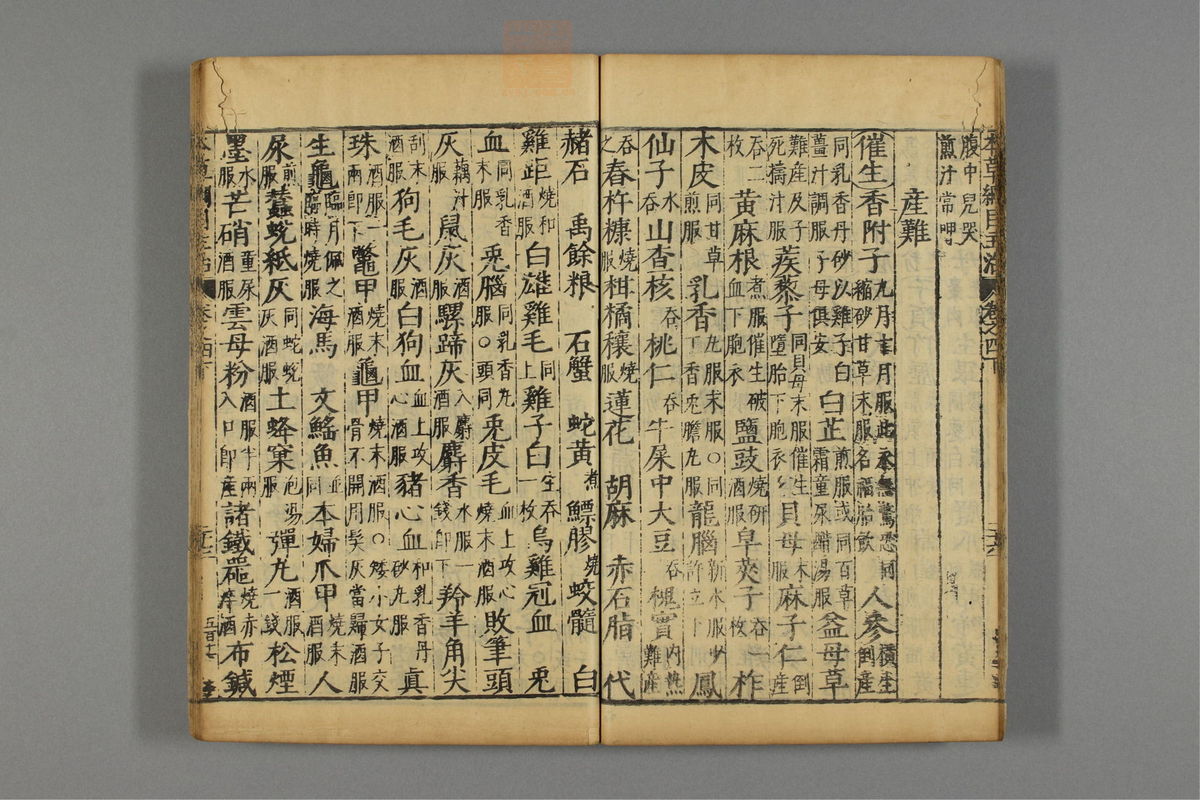 腹中兒哭
煎汁常呷
産難
催生 香附子 九月十月服此永無驚恐同縮砂甘草末服名福胎飲 人參 横生倒産
同乳香丹砂以雞子白薑汁調服子母俱安 白芷 煎服或同百草霜童尿醋湯服 益母草
難産及子死擣汁服 蒺藜子 同貝母末服催生墮胎下胞衣 貝母 末服 麻子仁 倒産
吞二枚 黄麻根 煮服催生破血下胞衣 鹽豉 燒研酒服 皁莢子 吞一枚 柞
木皮 同甘草煎服 乳香 丸服末服○同丁香兎膽丸服 龍腦 新水服少許立下 鳳
仙子 水吞 山查核 吞 桃仁 吞 牛屎中大豆 吞 槐實 内熱難産
吞之 春杵糠 燒服 柑橘穰 燒服 蓮花 胡麻 赤石脂 代
赭石 禹餘粮 石蟹 蛇黄 煮 鰾膠 燒 蛟髓 白
雞距 燒和酒服 白雄雞毛 同上 雞子白 生吞一枚 烏雞冠血 兎
血 同乳香末服 兎腦 同乳香丸服○頭同 兎皮毛 血上攻心燒末酒服 敗筆頭
灰 藕汁服 鼠灰 酒服 騾蹄灰 入麝酒服 麝香 水服一錢即下 羚羊角尖
刮末酒服 狗毛灰 酒服 白狗血 血上攻心酒服 豬心血 和乳香丹砂丸服 真
珠 酒服一兩即下 鼈甲 燒末酒服 龜甲 燒末酒服○矮小女子交骨不開同髮灰當歸酒服
生龜 臨月佩之臨時燒服 海馬 文鰩魚 並同 本婦爪甲 燒末酒服 人
尿 煎服 蠶蛻紙灰 同蛇蛻灰酒服 土蜂窠 泡湯服 彈丸 酒服一錢 松煙
墨 水服 芒硝 童尿酒服 雲母粉 酒服半兩入口即産 諸鐵器 燒赤淬酒 布鍼